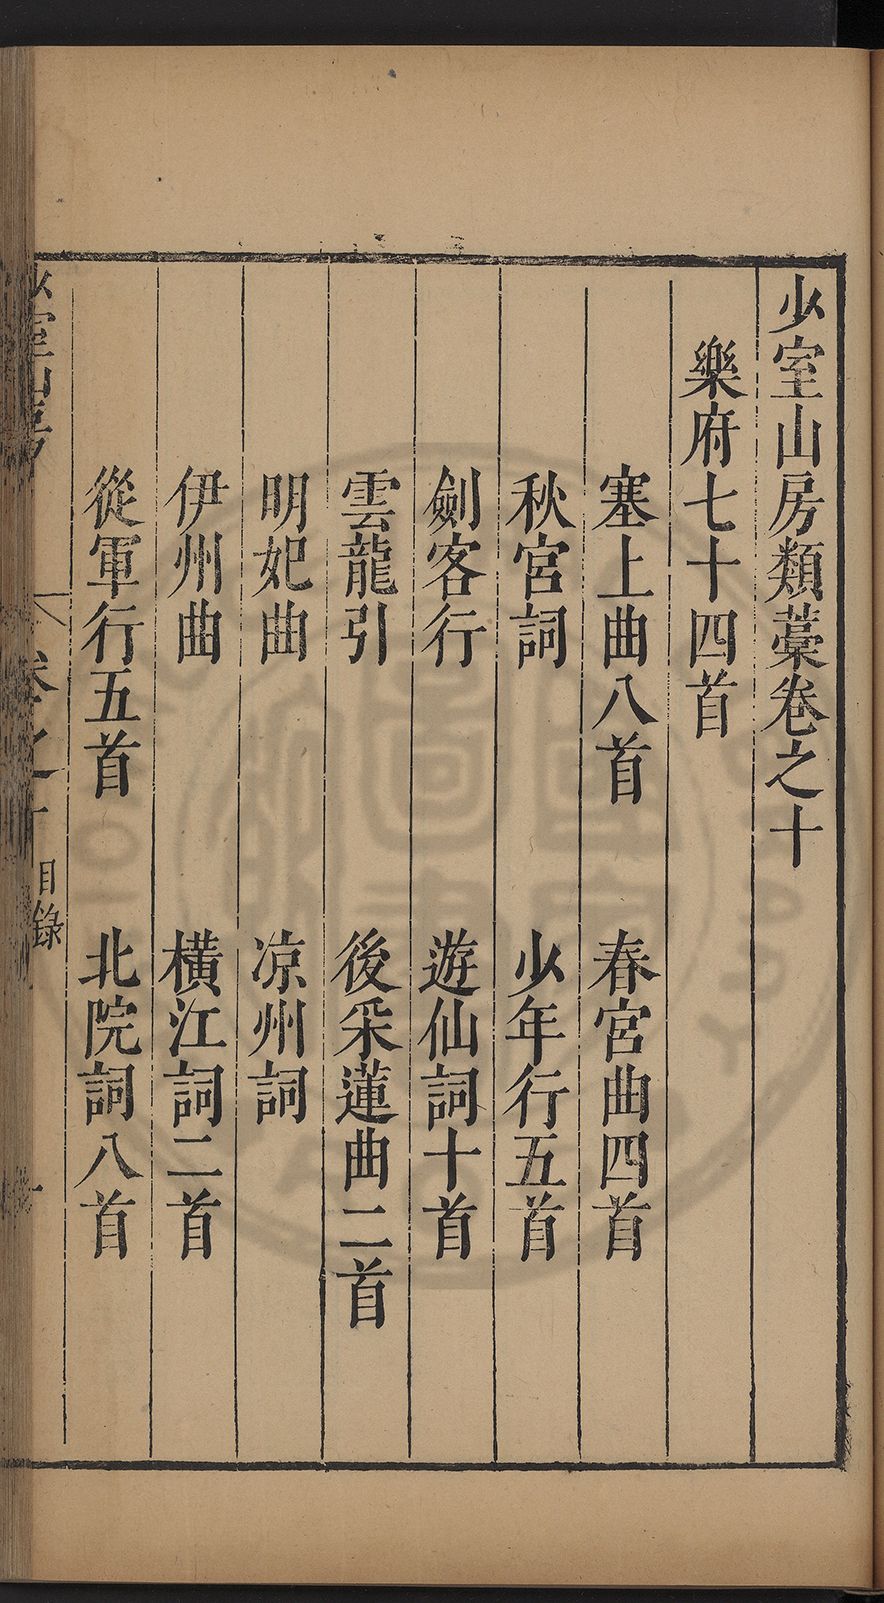 少室山房類藁卷之十
樂府七十四首
塞上曲八首　春宮曲四首
秋宮詞　少年行五首
劍客行　遊仙詞十首
雲龍引　後采蓮曲二首
明妃曲　凉州詞
伊州曲　橫江詞二首
從軍行五首　北院詞八首
少室山房　卷之十　目錄　一